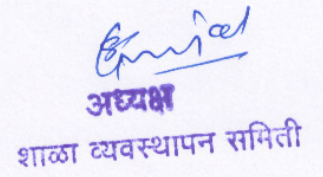 अध्यक्ष
शाळा व्यवस्थापन समिती